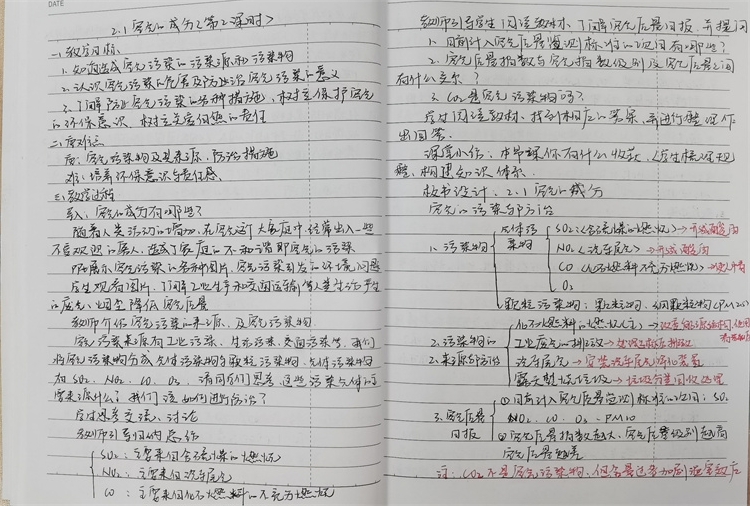 DATE
2.1 空气的成分(第2课时)
一、教学目标
1. 知道造成空气污染的污染源和污染物
2. 认识空气污染的危害及防止治空气污染的意义
3. 了解防止空气污染的各种措施，树立保护空气
的环保意识 树立关爱自然的责任
二、重难点
重：空气污染物及其来源，防治措施
难：培养环保意识与责任感
三、教学过程
导入：空气的成分有哪些？
随着人类活动的增加，在空气这个大家庭中，经常出入一些
不受欢迎的客人，造成了家庭的不和谐即空气的污染
学生观看图片，了解工业生产和交通运输等人类生活产生
的废气、烟尘降低空气质量
教师介绍空气污染的来源，及空气污染物
空气污染来源有工业污染、生活污染、交通污染等，我们
将空气污染物分成气体污染物与颗粒污染物，气体污染物
如 SO₂、NO₂、CO、O₃，请同学们思考，这些污染气体的主
要来源什么？我们该如何进行防治？
学生思考交流、讨论
教师引导归纳总结
SO₂：主要来自含硫煤的燃烧
NO₂：主要来自汽车尾气
CO：主要来自化石燃料的不充分燃烧
教师引导学生阅读教材，了解空气质量日报，并提问
1. 目前计入空气质量监测标准的项目有哪些？
2. 空气质量指数与空气指数级别及空气质量之间
有什么关系？
3. CO₂是空气污染物吗？
学生阅读教材，找到相应的答案，并进行整理作
出回答
课堂小结：本节课你有什么收获，(学生梳理思
维，构建知识体系
板书设计：2.1 空气的成分
空气的污染与防治
1. 污染物
气体污
染物
SO₂<含硫煤的燃烧>→形成酸雨
NO₂<汽车尾气>→形成酸雨
CO<化石燃料不充分燃烧>
O₃
2. 污染物的
来源与防治
化石燃料的燃烧
工业废气的排放→处理工业废气排放
汽车尾气→安装汽车尾气净化装置
露天焚烧垃圾→垃圾分类回收处理
3. 空气质量
日报
①目前计入空气质量监测标准的项目：SO₂
NO₂、CO、O₃、PM10
②空气质量指数越大，空气质量等级别越高
空气质量越差
注：CO₂不是空气污染物，但含量过多会加剧温室效应